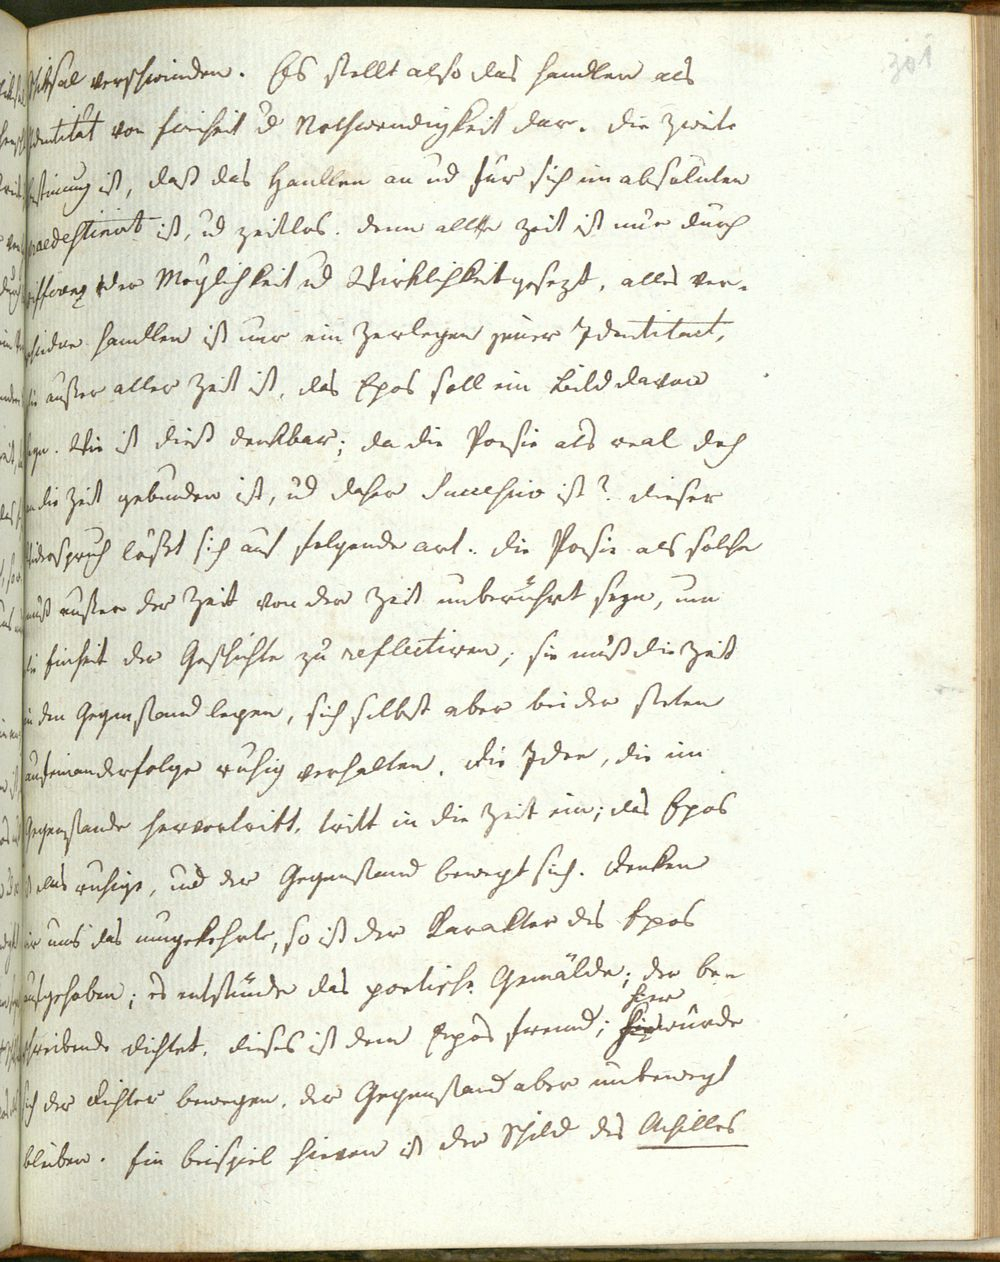 301
schiksal verschwinden. Es stellt also das Handlen als
Identität von Freiheit u̅d Nothwendigkeit dar. Die zweite
Bestimung ist, daß das Handlen an ud für sich im absoluten
praedestinirt ist, ud zeitlos. Denn alle Zeit ist nur durch
Differenz der Möglichkeit ud Wirklichkeit gesezt, alles ver-
schidne Handlen ist nur ein Zerlegen jener Identitaet,
die außer aller Zeit ist, das Epos soll ein Bild davon
seyn. Wie ist dieß denkbar; da die Poesie als real doch
an die Zeit gebunden ist, ud daher Succeßiv ist? Dieser
Widerspruch lößt sich auf folgende art. Die Poesie als solche
muß außer der Zeit von der Zeit unberührt seyn, um
die Einheit der Geschichte zu reflectiren; sie muß die Zeit
in den Gegenstand legen, sich selbst aber bei der steten
aufeinanderfolge ruhig verhalten. Die Idee, die im
Gegenstande hervortritt, tritt in die Zeit ein; das Epos
ist das ruhige, ud der Gegenstand bewegt sich. Denken
wir uns das umgekehrte, so ist der Karakter des Epos
aufgehoben; es entstünde das poetische Gemälde; der be-
schreibende Dichter. dieses ist dem Epos fremd; hier würde
sich der Dichter bewegen, der Gegenstand aber unbewegt
bleiben. Ein beispiel hievon ist der Schild des Achilles